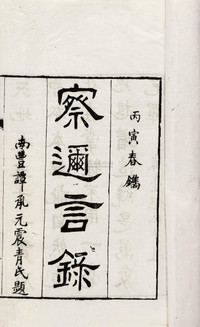 丙寅春鐫
察邇言錄
南豐譚承元震青氏題